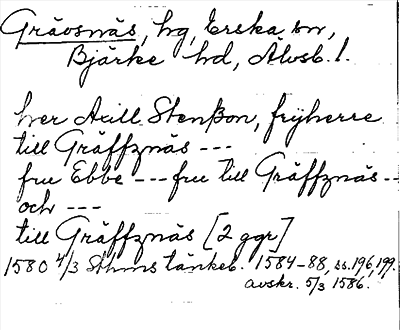 Gräosnäs, hg, Erska sn,
Bjärke hd, Älvsb. l.
her Axill Stenßon, fryherre
till Gräffznäs ---
fru Ebbe --- fru till Gräffznäs --
och ---
till Gräffznäs [2 ggr]
1580 4/3 Sthms tänkeb. 1584-88, ss. 196, 199.
avskr. 5/3 1586.